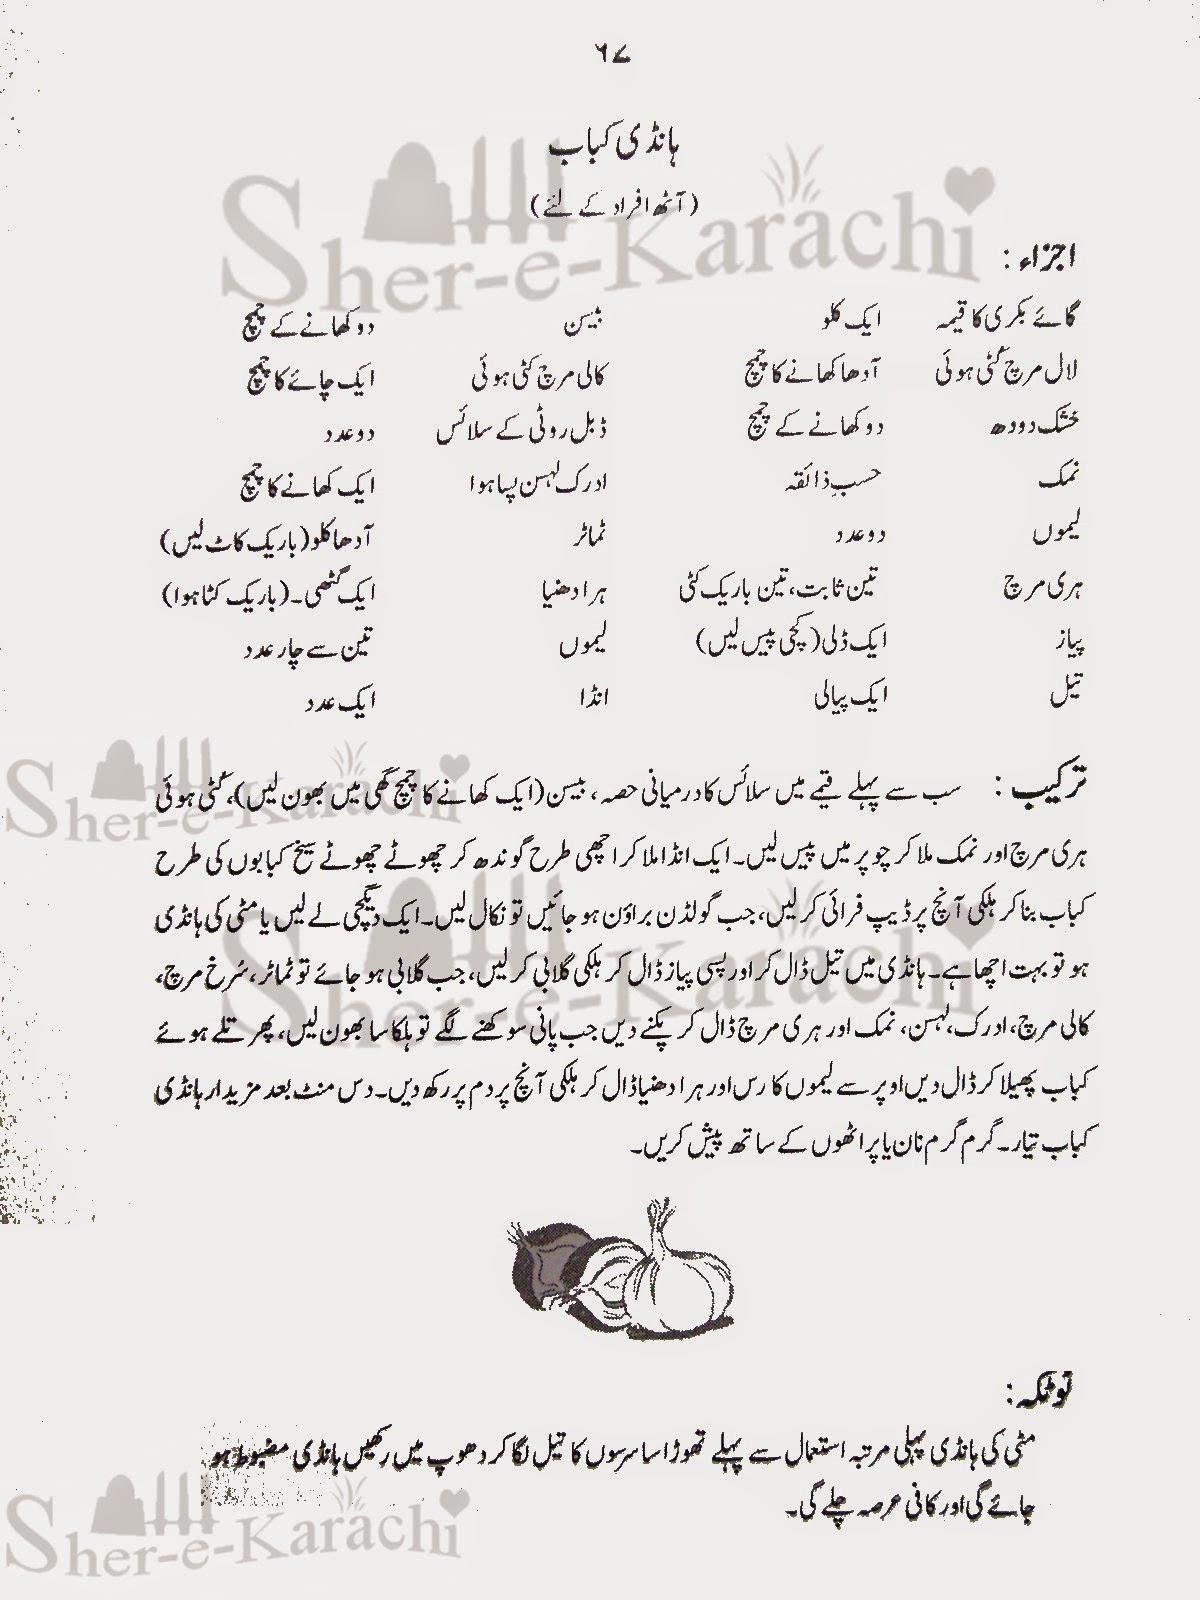 ۶۷
ہانڈی کباب
(آٹھ افراد کے لئے)
اجزاء :
گائے بکری کا قیمہ ایک کلو بیسن دو کھانے کے چمچ
لال مرچ کٹی ہوئی آدھا کھانے کا چمچ کالی مرچ کٹی ہوئی ایک چائے کا چمچ
خشک دودھ دو کھانے کے چمچ ڈبل روٹی کے سلائس دو عدد
نمک حسبِ ذائقہ ادرک لہسن پسا ہوا ایک کھانے کا چمچ
لیموں دو عدد ٹماٹر آدھا کلو (باریک کاٹ لیں)
ہری مرچ تین ثابت، تین باریک کٹی ہرا دھنیا ایک گٹھی۔ (باریک کٹا ہوا)
پیاز ایک ڈلی (کچی پیس لیں) لیموں تین سے چار عدد
تیل ایک پیالی انڈا ایک عدد
ترکیب : سب سے پہلے قیمے میں سلائس کا درمیانی حصہ، بیسن (ایک کھانے کا چمچ گھی میں بھون لیں)، کٹی ہوئی
ہری مرچ اور نمک ملا کر چوپر میں پیس لیں۔ ایک انڈا ملا کر اچھی طرح گوندھ کر چھوٹے چھوٹے سیخ کبابوں کی طرح
کباب بنا کر ہلکی آنچ پر ڈیپ فرائی کر لیں، جب گولڈن براؤن ہو جائیں تو نکال لیں۔ ایک دیگچی لے لیں یا مٹی کی ہانڈی
ہو تو بہت اچھا ہے۔ ہانڈی میں تیل ڈال کر اور پسی پیاز ڈال کر ہلکی گلابی کر لیں، جب گلابی ہو جائے تو ٹماٹر، سُرخ مرچ،
کالی مرچ، ادرک، لہسن، نمک اور ہری مرچ ڈال کر پکنے دیں جب پانی سوکھنے لگے تو ہلکا سا بھون لیں، پھر تلے ہوئے
کباب پھیلا کر ڈال دیں اوپر سے لیموں کا رس اور ہرا دھنیا ڈال کر ہلکی آنچ پر دم پر رکھ دیں۔ دس منٹ بعد مزیدار ہانڈی
کباب تیار۔ گرم گرم نان یا پراٹھوں کے ساتھ پیش کریں۔
ٹوٹکہ :
مٹی کی ہانڈی پہلی مرتبہ استعمال سے پہلے تھوڑا سا سرسوں کا تیل لگا کر دھوپ میں رکھیں ہانڈی مضبوط ہو
جائے گی اور کافی عرصہ چلے گی۔
Sher-e-Karachi
Sher-e-Karachi
Sher-e-Karachi
Sher-e-Karachi